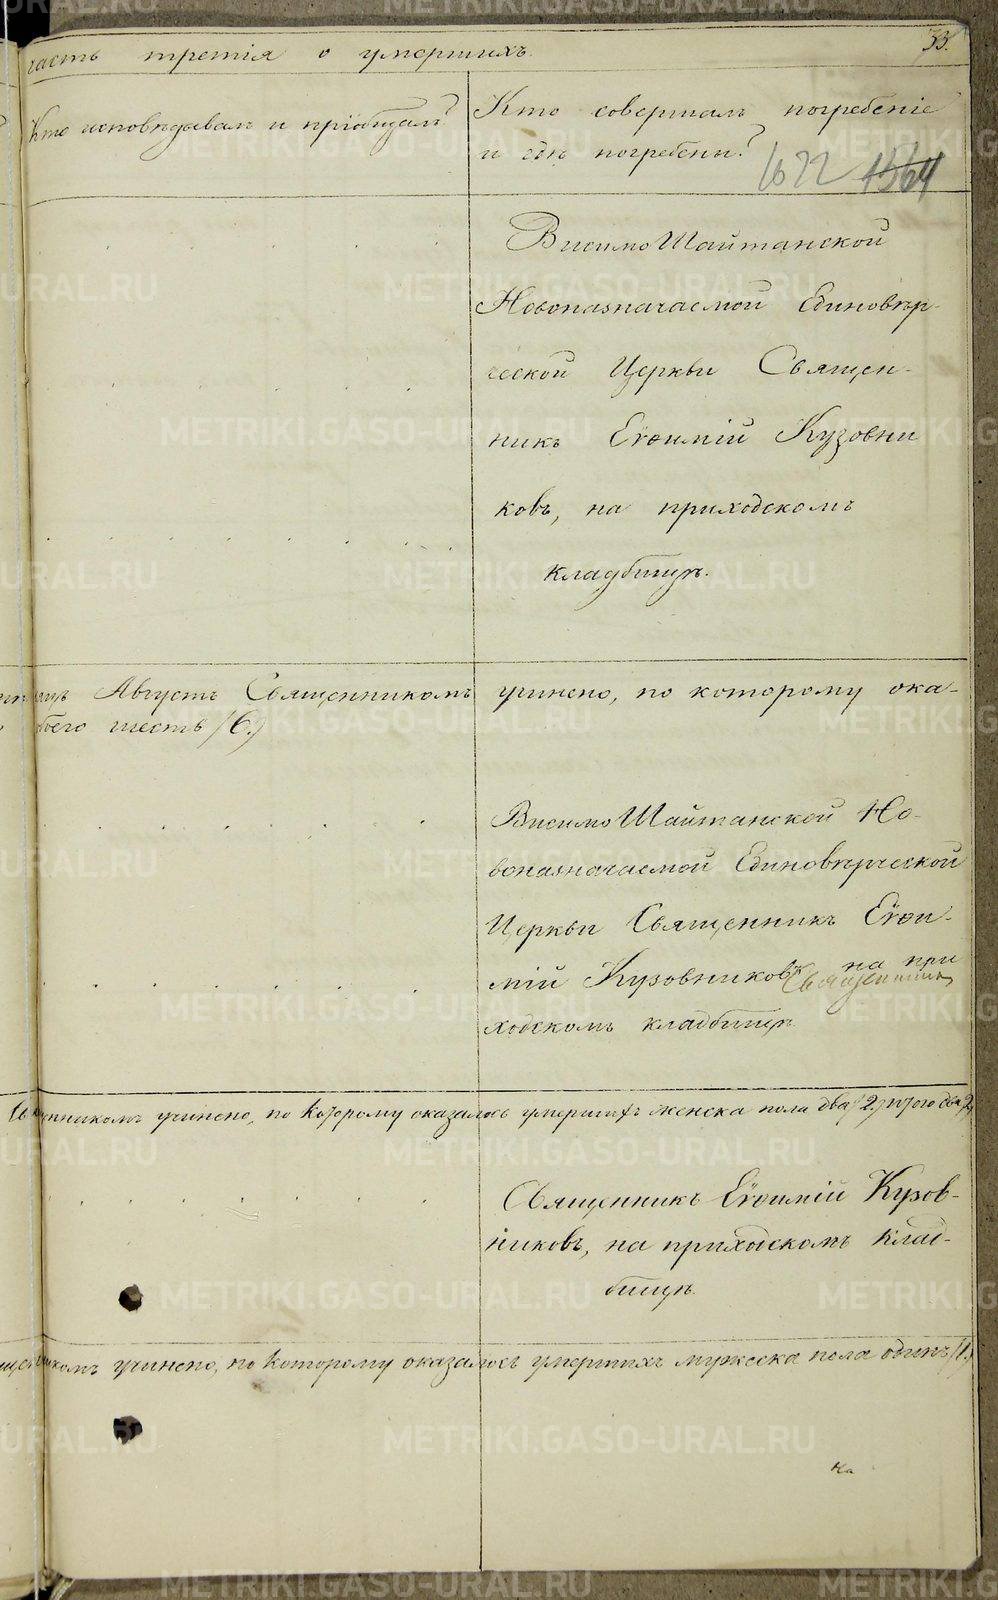 часть третія о умершихъ.
33.
Кто исповѣдавалъ и пріобщалъ?
Кто совершалъ погребеніе
и гдѣ погребены?
1622 1564
Висимо Шайтанской
Новоназначаемой Единовѣр-
ческой Церкви Священ-
никъ Евѳимій Кузовни
ковъ, на приходскомъ
кладбищѣ.
Августъ Священникомъ
учинено, по которому ока-
обоего шесть /6.)
Висимо Шайтанской Но-
воназначаемой Единовѣрческой
Церкви Священникъ Евѳи-
мій Кузовниковъ на при
Священникъ
ходскомъ кладбищѣ
Священникомъ учинено, по которому оказалось умершихъ женска пола два /2.) итого два /2.)
Священникъ Евѳимій Кузов-
никовъ, на приходскомъ клад-
бищѣ.
щенникомъ учинено, по которому оказалось умершихъ мужеска пола одинъ /1.)
на
METRIKI.GASO-URAL.RU